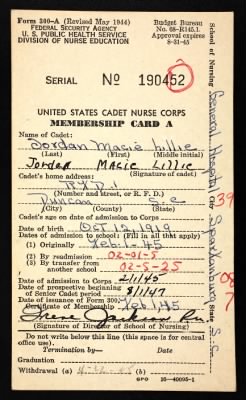 Form 300-A (Revised May 1944)
FEDERAL SECURITY AGENCY
U. S. PUBLIC HEALTH SERVICE
DIVISION OF NURSE EDUCATION
Budget Bureau
No. 68-R145.1.
Approval expires
8-31-45
SERIAL No 190452
UNITED STATES CADET NURSE CORPS
MEMBERSHIP CARD A
Name of Cadet:
Jordan Magie Lillie
(Last) (First) (Middle initial)
Jordan Magie Lillie
(Signature of cadet)
Cadet's home address:
R.F.D. 1
(Number and street, or R. F. D.)
Duncan S.C.
(City) (County) (State)
Cadet's age on date of admission to Corps
Date of birth Oct 12, 1919
Dates of admission to school: (Fill in all that apply)
(1) Originally Feb. 1-45
(2) By readmission 02-01-5
(3) By transfer from
another school 02-5-25
Date of admission to Corps 2/1/45
Date of prospective beginning
of Senior Cadet period 8/1/47
Date of issuance of Form 300:
Certificate of Membership Feb 1, 45
Irene Jackson R.N.
(Signature of Director of School of Nursing)
Do not write below this line (this space is for
official use)
Termination by— Date
Graduation
Withdrawal
GPO 16-40095-1
School of Nursing General Hospital Spartanburg State S.C.
39